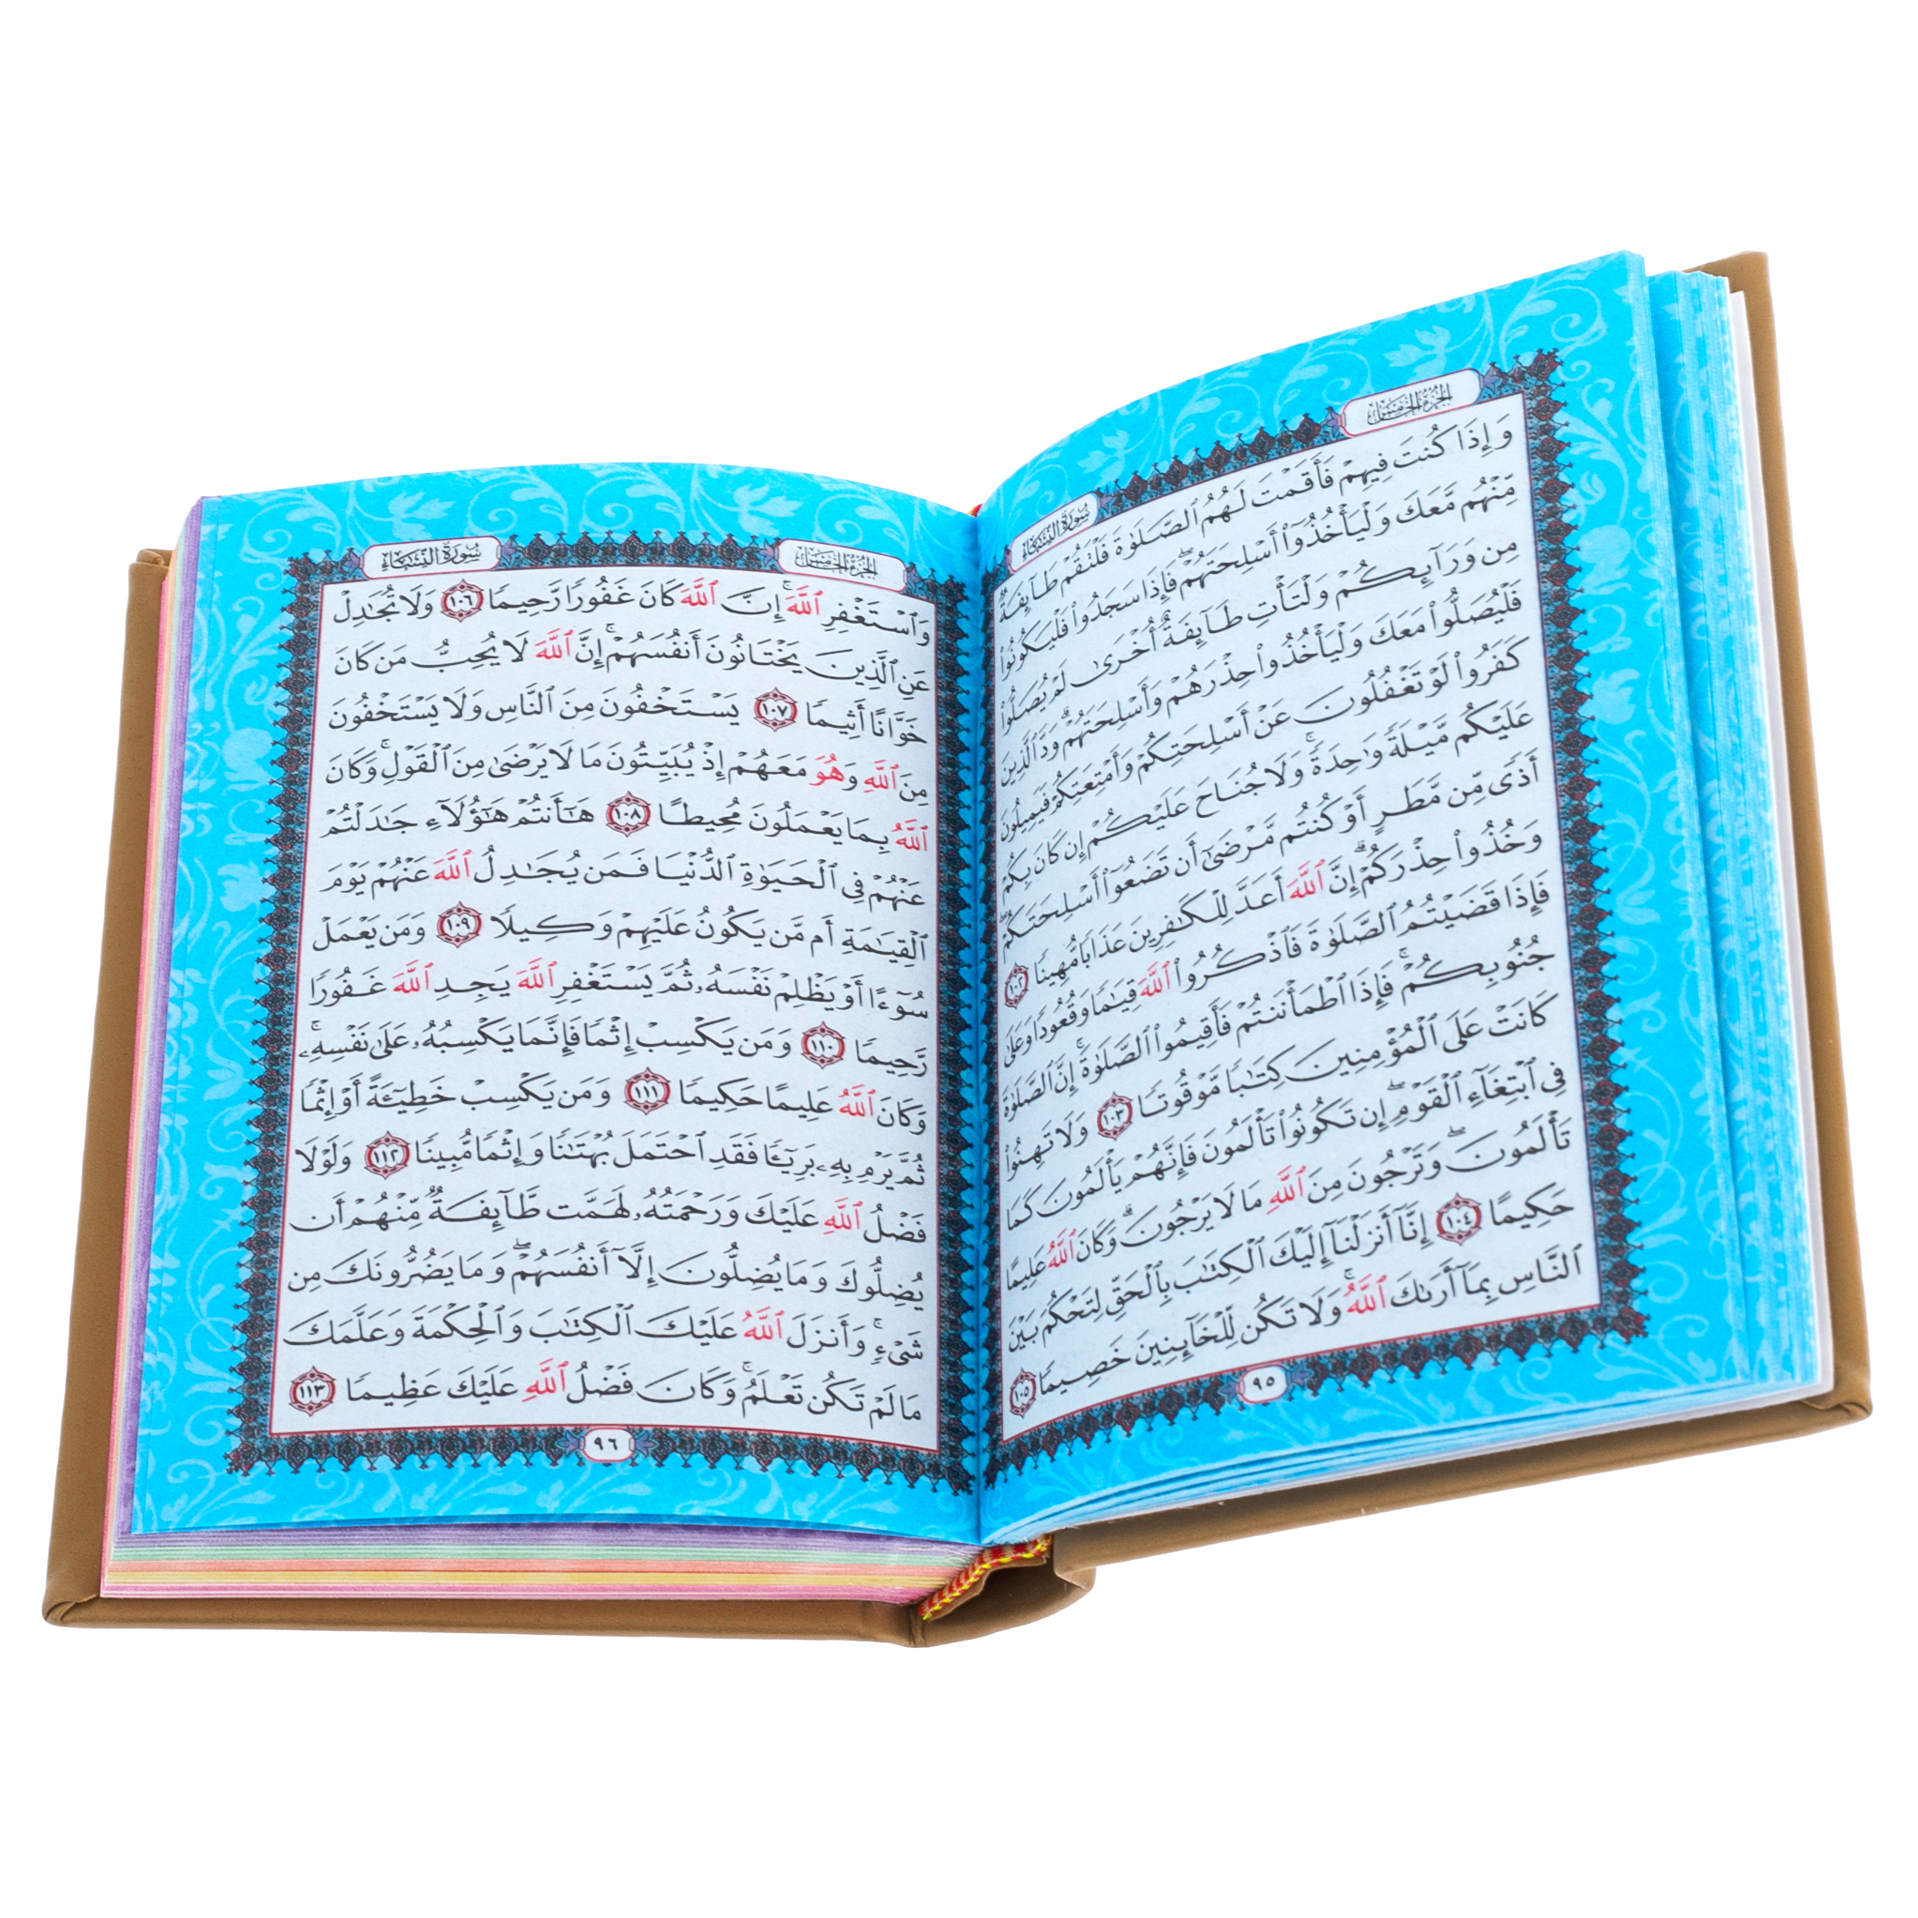 الجزء الخامس
سورة النساء
وَإِذَا كُنتَ فِيهِمْ فَأَقَمْتَ لَهُمُ ٱلصَّلَوٰةَ فَلْتَقُمْ طَآئِفَةٌ
مِّنْهُم مَّعَكَ وَلْيَأْخُذُوٓا۟ أَسْلِحَتَهُمْ ۖ فَإِذَا سَجَدُوا۟ فَلْيَكُونُوا۟
مِن وَرَآئِكُمْ وَلْتَأْتِ طَآئِفَةٌ أُخْرَىٰ لَمْ يُصَلُّوا۟
فَلْيُصَلُّوا۟ مَعَكَ وَلْيَأْخُذُوا۟ حِذْرَهُمْ وَأَسْلِحَتَهُمْ ۗ وَدَّ ٱلَّذِينَ
كَفَرُوا۟ لَوْ تَغْفُلُونَ عَنْ أَسْلِحَتِكُمْ وَأَمْتِعَتِكُمْ فَيَمِيلُونَ
عَلَيْكُم مَّيْلَةً وَٰحِدَةً ۚ وَلَا جُنَاحَ عَلَيْكُمْ إِن كَانَ بِكُمْ
أَذًى مِّن مَّطَرٍ أَوْ كُنتُم مَّرْضَىٰٓ أَن تَضَعُوٓا۟ أَسْلِحَتَكُمْ ۖ
وَخُذُوا۟ حِذْرَكُمْ ۗ إِنَّ ٱللَّهَ أَعَدَّ لِلْكَٰفِرِينَ عَذَابًا مُّهِينًا ١٠٢
فَإِذَا قَضَيْتُمُ ٱلصَّلَوٰةَ فَٱذْكُرُوا۟ ٱللَّهَ قِيَٰمًا وَقُعُودًا وَعَلَىٰ
جُنُوبِكُمْ ۚ فَإِذَا ٱطْمَأْنَنتُمْ فَأَقِيمُوا۟ ٱلصَّلَوٰةَ ۚ إِنَّ ٱلصَّلَوٰةَ
كَانَتْ عَلَى ٱلْمُؤْمِنِينَ كِتَٰبًا مَّوْقُوتًا ١٠٣ وَلَا تَهِنُوا۟
فِى ٱبْتِغَآءِ ٱلْقَوْمِ ۖ إِن تَكُونُوا۟ تَأْلَمُونَ فَإِنَّهُمْ يَأْلَمُونَ كَمَا
تَأْلَمُونَ ۖ وَتَرْجُونَ مِنَ ٱللَّهِ مَا لَا يَرْجُونَ ۗ وَكَانَ ٱللَّهُ عَلِيمًا
حَكِيمًا ١٠٤ إِنَّآ أَنزَلْنَآ إِلَيْكَ ٱلْكِتَٰبَ بِٱلْحَقِّ لِتَحْكُمَ بَيْنَ
ٱلنَّاسِ بِمَآ أَرَىٰكَ ٱللَّهُ ۚ وَلَا تَكُن لِّلْخَآئِنِينَ خَصِيمًا ١٠٥
٩٥
الجزء الخامس
سورة النساء
وَٱسْتَغْفِرِ ٱللَّهَ ۖ إِنَّ ٱللَّهَ كَانَ غَفُورًا رَّحِيمًا ١٠٦ وَلَا تُجَٰدِلْ
عَنِ ٱلَّذِينَ يَخْتَانُونَ أَنفُسَهُمْ ۚ إِنَّ ٱللَّهَ لَا يُحِبُّ مَن كَانَ
خَوَّانًا أَثِيمًا ١٠٧ يَسْتَخْفُونَ مِنَ ٱلنَّاسِ وَلَا يَسْتَخْفُونَ
مِنَ ٱللَّهِ وَهُوَ مَعَهُمْ إِذْ يُبَيِّتُونَ مَا لَا يَرْضَىٰ مِنَ ٱلْقَوْلِ ۚ وَكَانَ
ٱللَّهُ بِمَا يَعْمَلُونَ مُحِيطًا ١٠٨ هَٰٓأَنتُمْ هَٰٓؤُلَآءِ جَٰدَلْتُمْ
عَنْهُمْ فِى ٱلْحَيَوٰةِ ٱلدُّنْيَا فَمَن يُجَٰدِلُ ٱللَّهَ عَنْهُمْ يَوْمَ
ٱلْقِيَٰمَةِ أَم مَّن يَكُونُ عَلَيْهِمْ وَكِيلًا ١٠٩ وَمَن يَعْمَلْ
سُوٓءًا أَوْ يَظْلِمْ نَفْسَهُۥ ثُمَّ يَسْتَغْفِرِ ٱللَّهَ يَجِدِ ٱللَّهَ غَفُورًا
رَّحِيمًا ١١٠ وَمَن يَكْسِبْ إِثْمًا فَإِنَّمَا يَكْسِبُهُۥ عَلَىٰ نَفْسِهِۦ ۚ
وَكَانَ ٱللَّهُ عَلِيمًا حَكِيمًا ١١١ وَمَن يَكْسِبْ خَطِيٓـَٔةً أَوْ إِثْمًا
ثُمَّ يَرْمِ بِهِۦ بَرِيٓـًٔا فَقَدِ ٱحْتَمَلَ بُهْتَٰنًا وَإِثْمًا مُّبِينًا ١١٢ وَلَوْلَا
فَضْلُ ٱللَّهِ عَلَيْكَ وَرَحْمَتُهُۥ لَهَمَّت طَّآئِفَةٌ مِّنْهُمْ أَن
يُضِلُّوكَ وَمَا يُضِلُّونَ إِلَّآ أَنفُسَهُمْ ۖ وَمَا يَضُرُّونَكَ مِن
شَىْءٍ ۚ وَأَنزَلَ ٱللَّهُ عَلَيْكَ ٱلْكِتَٰبَ وَٱلْحِكْمَةَ وَعَلَّمَكَ
مَا لَمْ تَكُن تَعْلَمُ ۚ وَكَانَ فَضْلُ ٱللَّهِ عَلَيْكَ عَظِيمًا ١١٣
٩٦